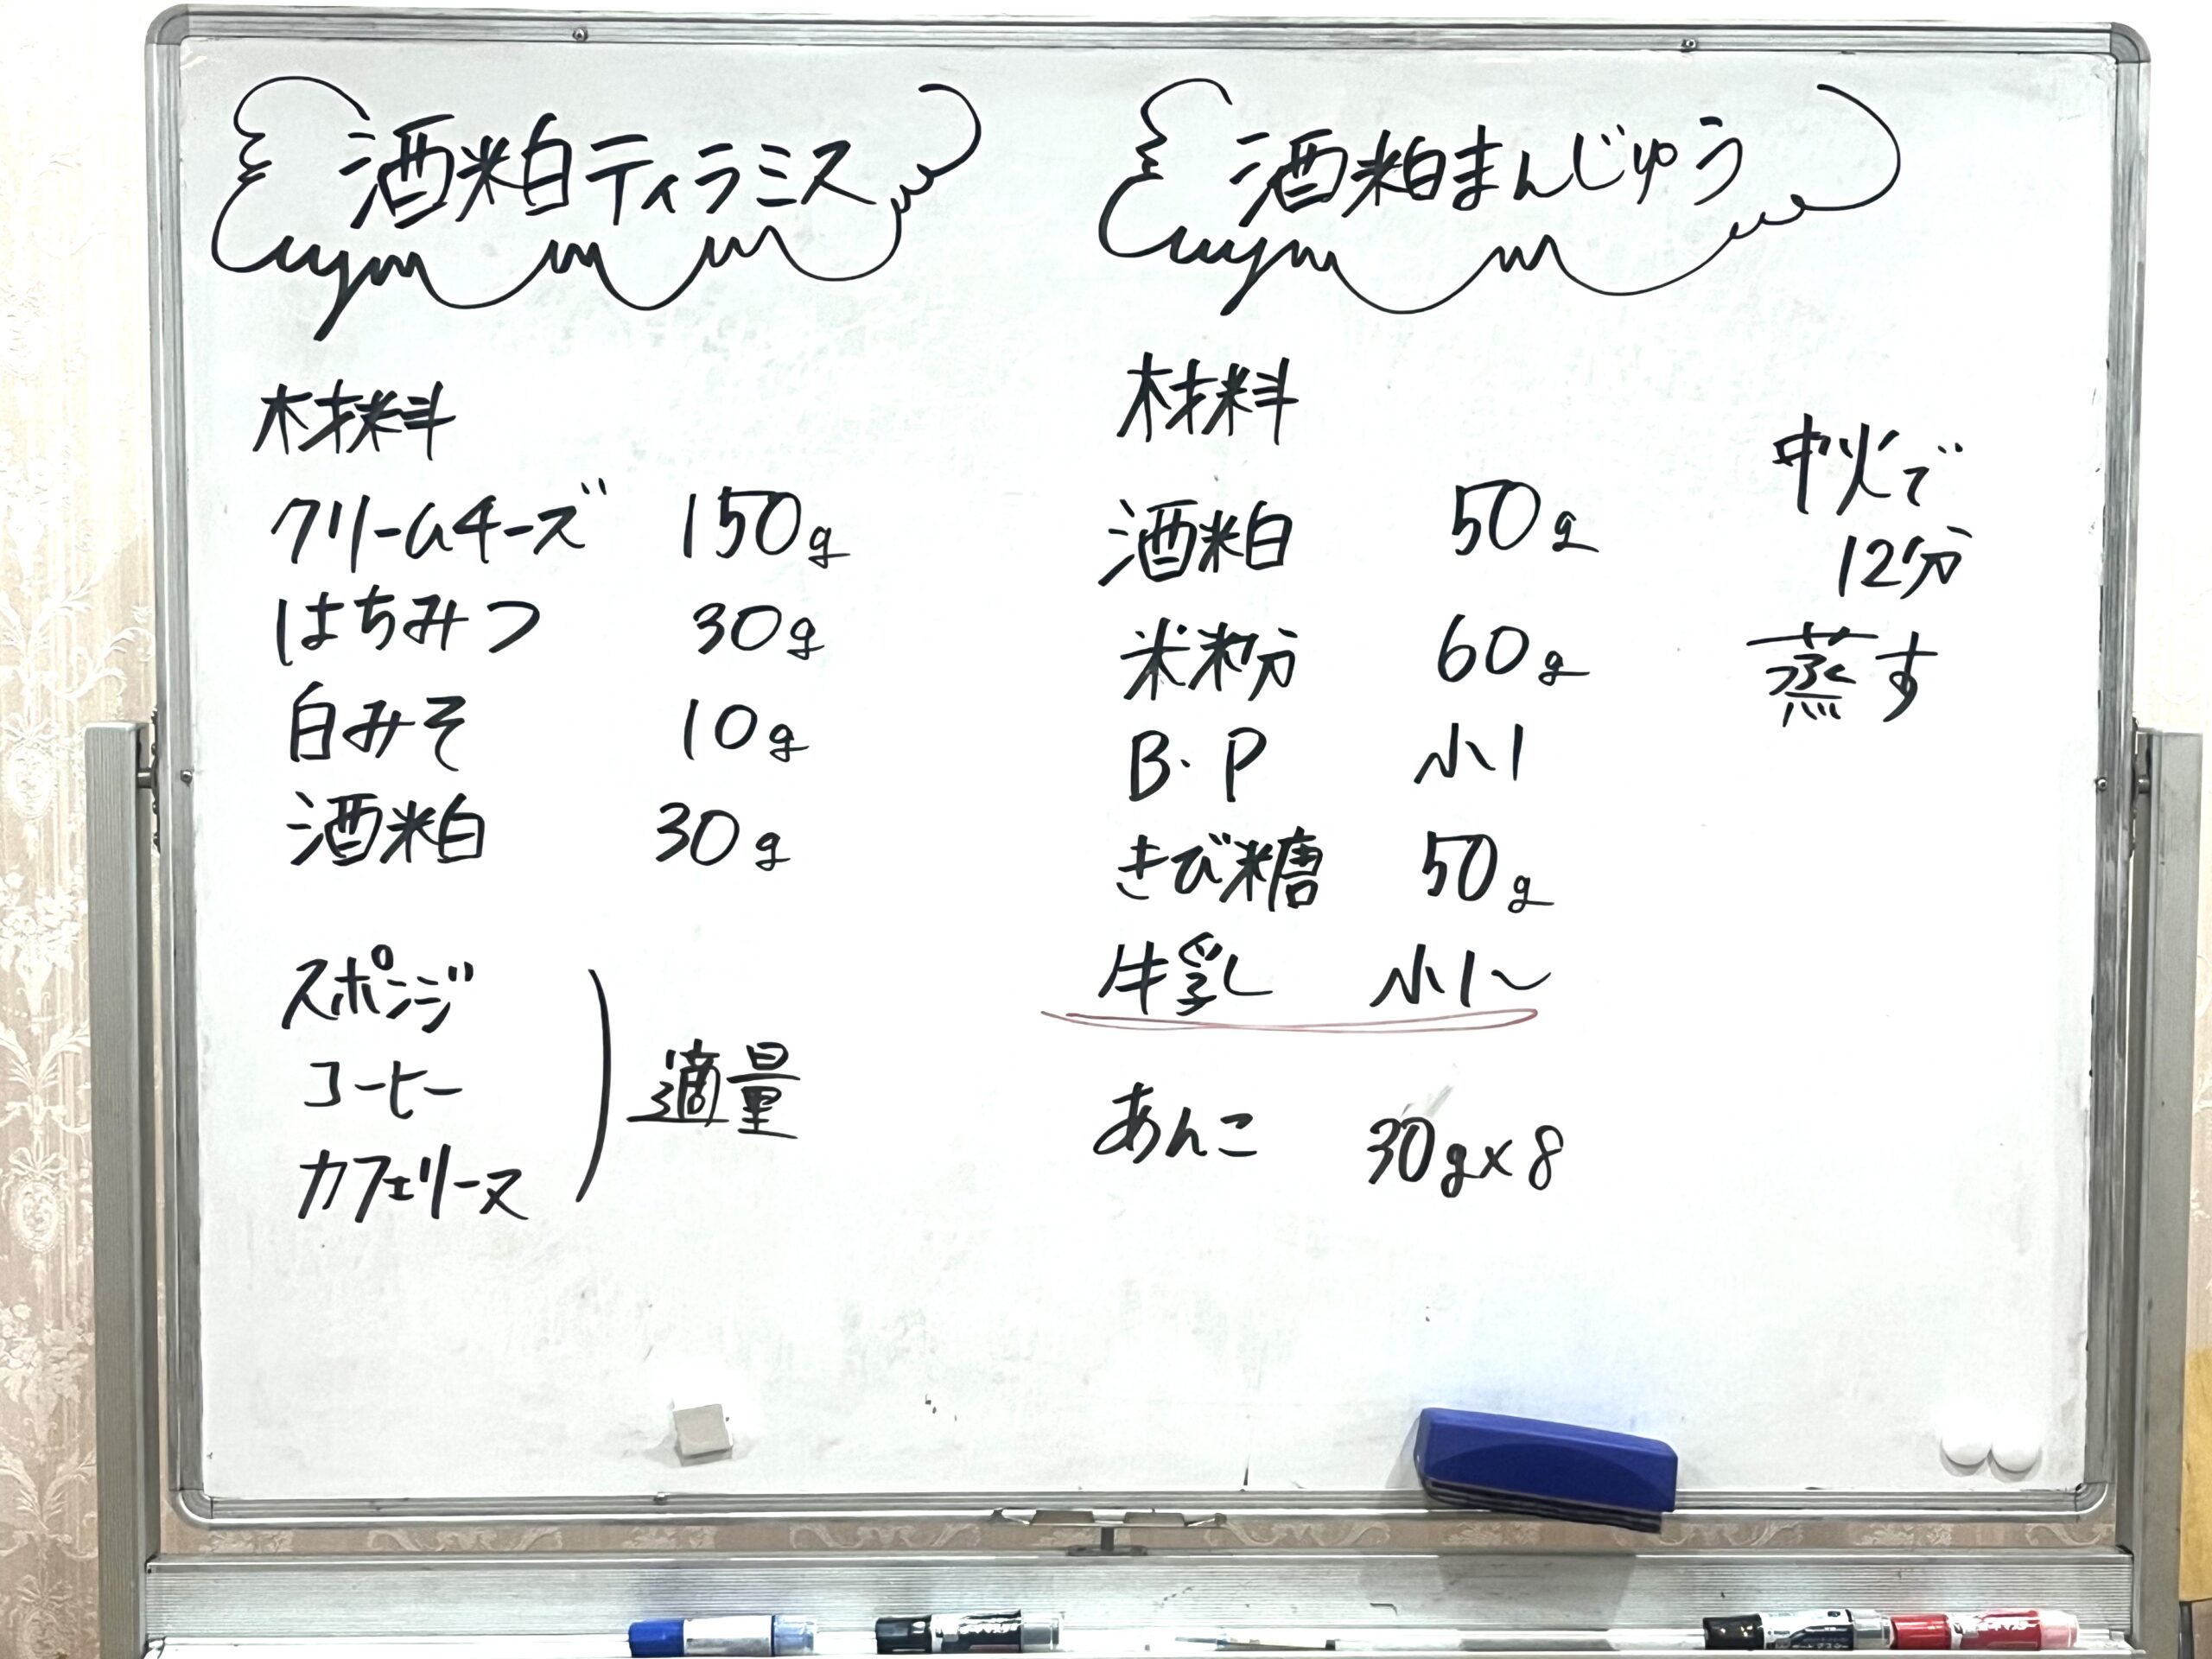 酒粕ティラミス
材料
クリームチーズ 150g
はちみつ 30g
白みそ 10g
酒粕 30g
スポンジ
コーヒー
カフェリーヌ
適量
酒粕まんじゅう
材料
酒粕 50g
米粉 60g
B・P 小1
きび糖 50g
牛乳 小1〜
あんこ 30g×8
中火で
12分
蒸す